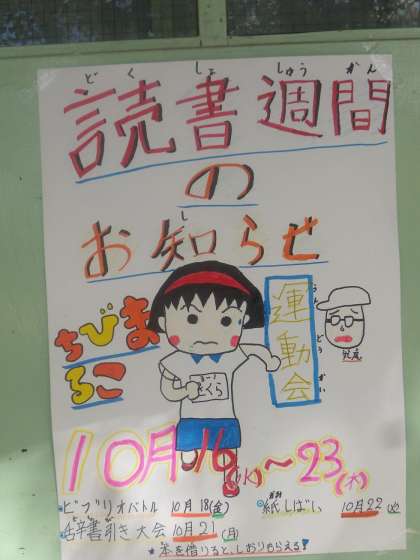 どくしょしゅうかん
読書週間
の
お知らせ
し
ちびまる子
運動会
うんどうかい
さくら
10月16(水)～23(水)
ビブリオバトル 10月18(金)
紙しばい 10月22(火)
辞書引き大会 10月21(月)
★本を借りると、しおりもらえる!